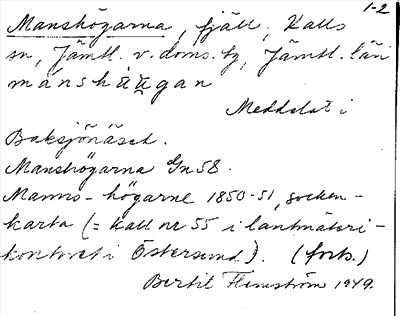 1-2
Manshögarna, fjäll, Kalls
sn, Jämtl. v. doms. by, Jämtl. län
manshäugan
Meddelat i
Baksjönäset.
Manshögarna Gn 58.
Manns-högarne 1850-51, socken-
karta (= Kall nr 55 i lantmäteri-
kontoret i Östersund). (forts.)
Bertil Flemström 1949.